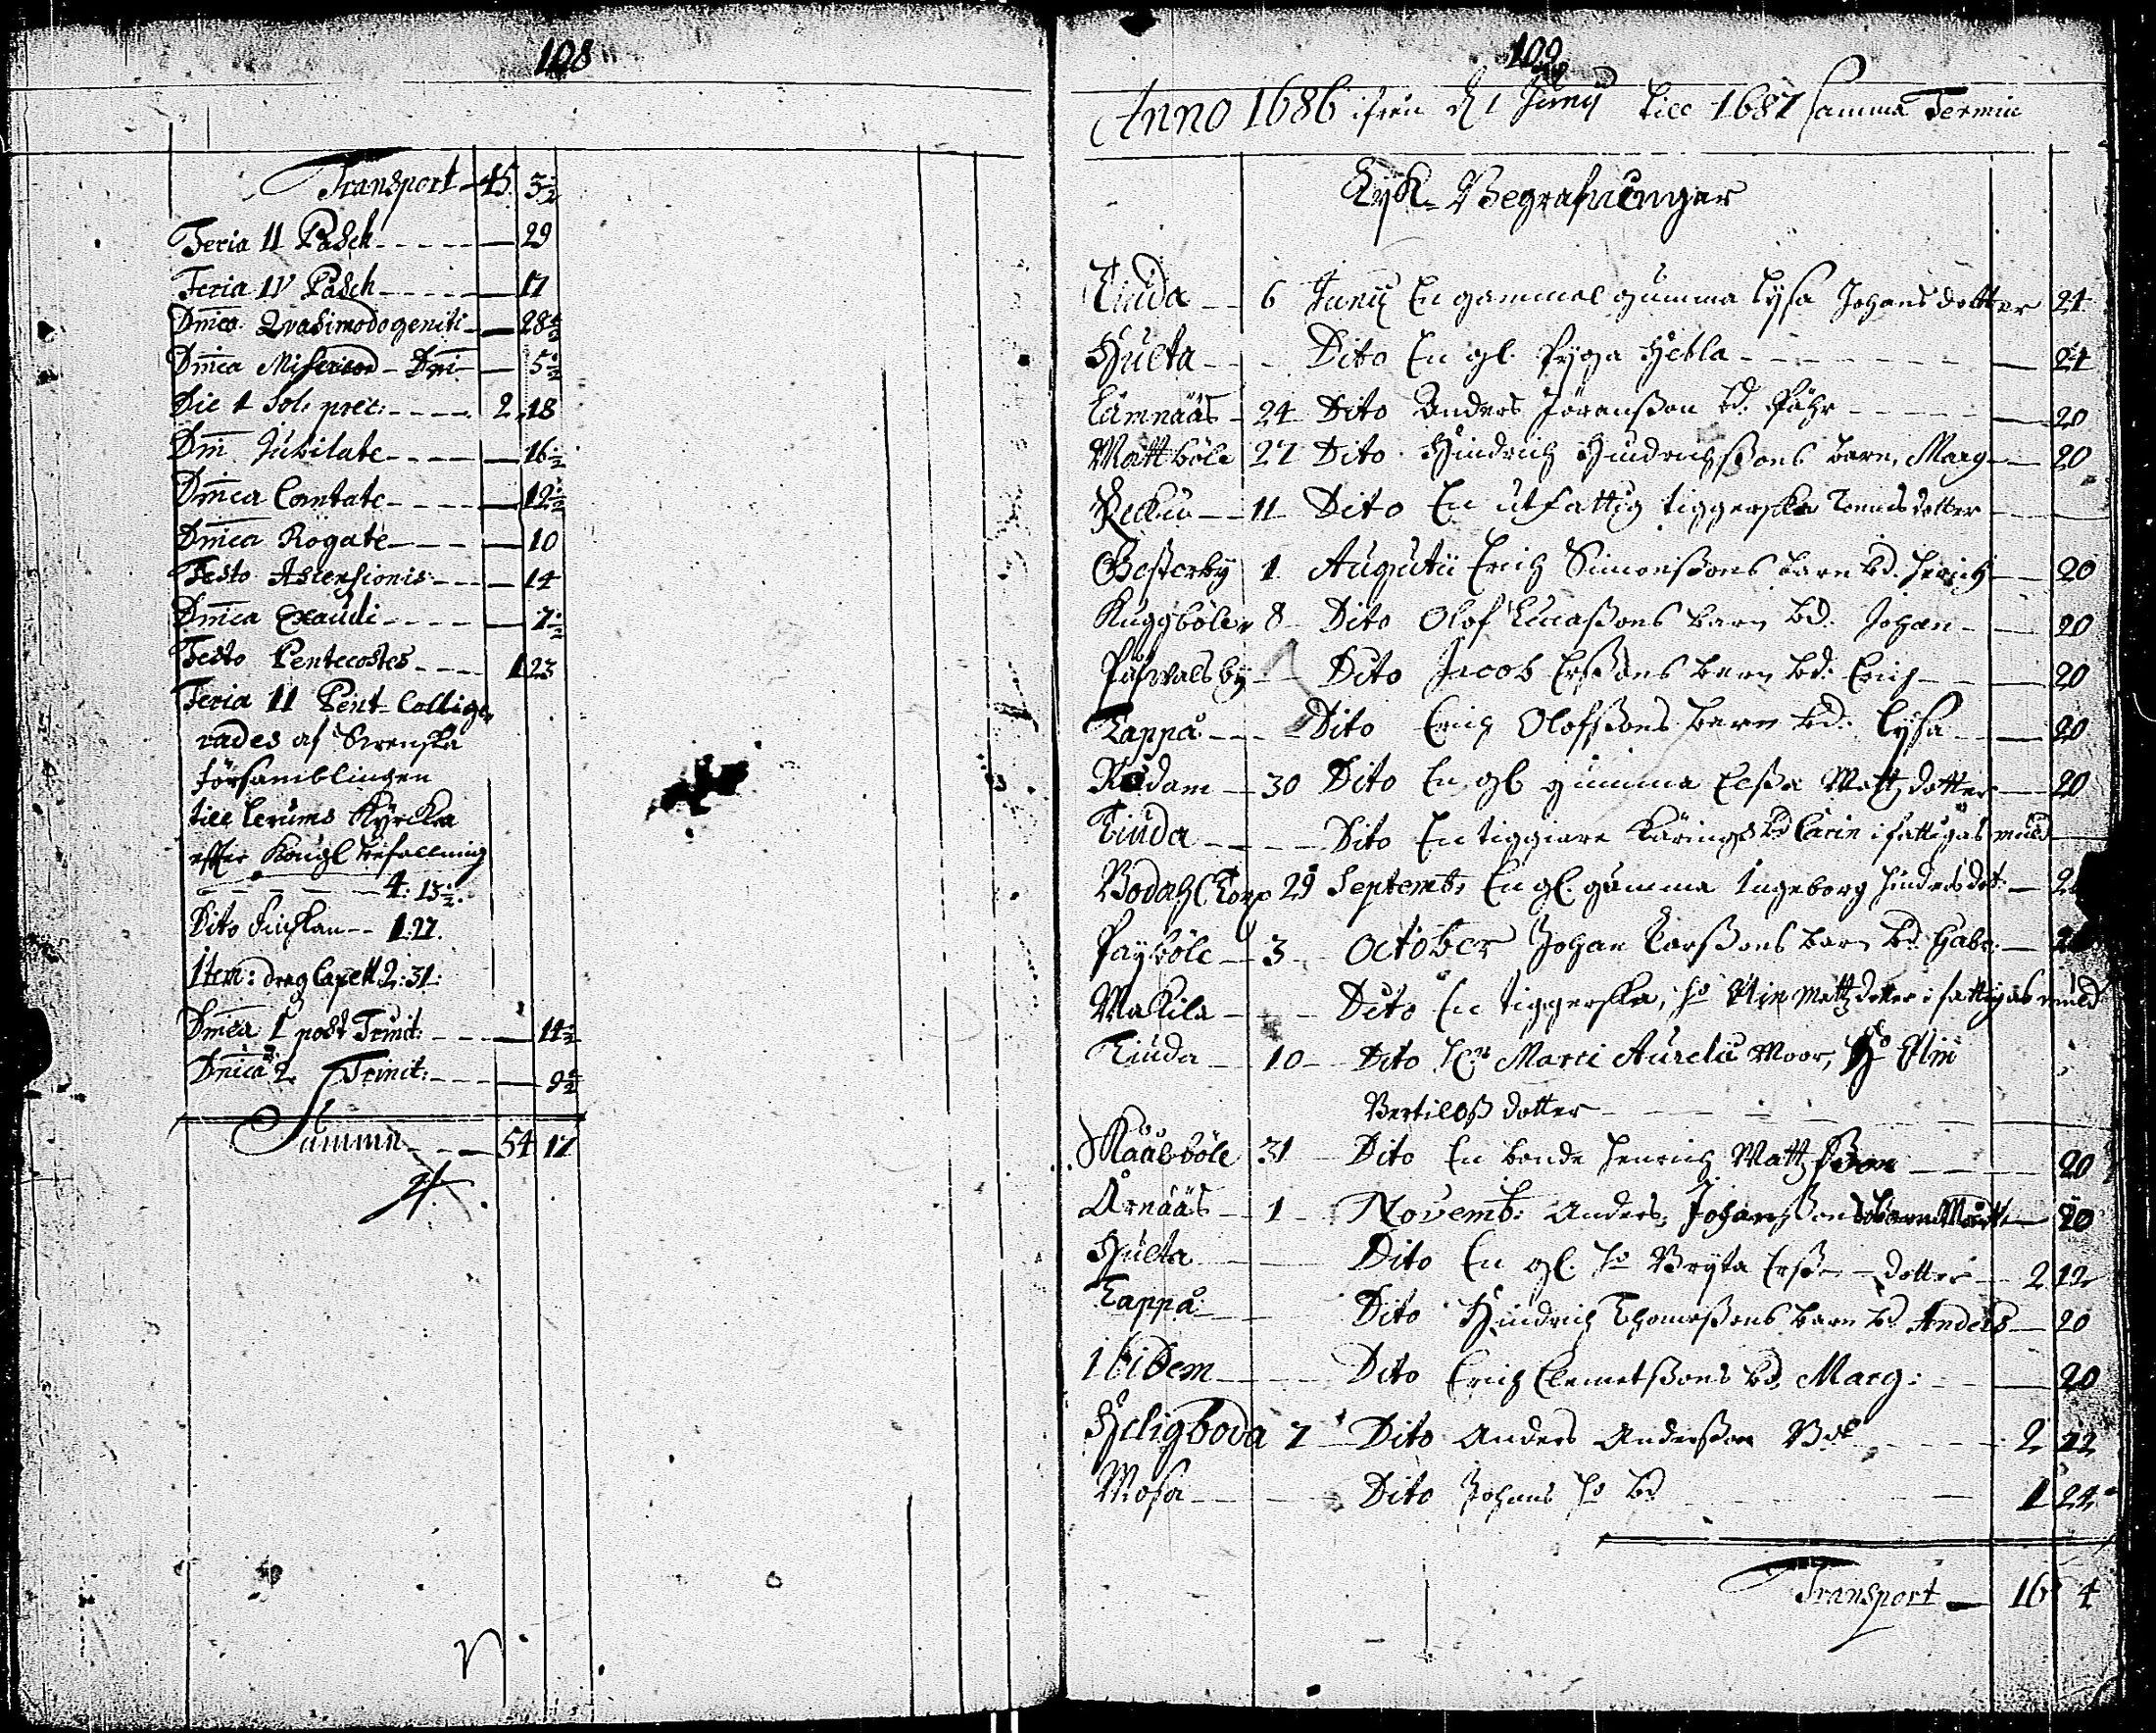 108
Transport - 45. 3½
Feria II Pasch - - - - - 29
Feria IV Pasch - - - - - 17
Dnica Qvasimodogeniti - 28½
Dnica Misericord - Dni - 5½
Die 1 Sol. prec: - - - - 2. 18
Dni Jubilate - - - - 16½
Dnica Cantate - - - - 12½
Dnica Rogate - - - 10
Festo Ascensionis - - - 14
Dnica Exaudi - - - - 7½
Festo Pentecostes - - - 1 23
Feria II Pent. Collige
rades af Swenska
församblingen
till Lerums Kyrckia
effter Kongl befallning
- - - - - 4: 13½.
Dito Finskan - - 1:27.
Item: Drag Capell 2:31.
Dnica 1 post Trinit: - - - 14½
Dnica 2 Trinit: - - - 9½
Summa - - - 54 17
109
Anno 1686 ifrån d 1 Junij till 1687 samma Termin
Lyk-Begrafningar
Linda - - 6 Junij En gammal gumma Lysa Johans dotter 24
Hulta - - - Dito En gl. pyga Hebla - - - - - 24
Lämnääs - 24 Dito Anders Jöransson bd. - - - 20
Mattböle 27 Dito Hindrich Hindrichssons barn, Marg - 20
Reckus - 11 Dito En utfattig tiggerska dotter - - -
Gesterby 1. Augustii Erich Simonssons barn bd. Hinrich - 20
Kuggböle 8 Dito Olof Lucassons barn bd. Johan - - 20
Påfwalsby - - Dito Jacob Erssons barn bd. Erich - - 20
Lappå - - - Dito Erich Olofssons barn bd. Lysa - - 20
Rådam - 30 Dito En gl gumma Elssa Mattzdotter - 20
Linda - - - Dito En tiggiare Käring bd Carin i fattigas muld
29 Septemb: En gl. gumma Ingeborg Hindersdot: -
Payböle - 3 October Johan Larssons barn bd. Gabr. -
Makila - - Dito En tiggerska, ho Elin Mattzdotter i fattigas muld
Linda - 10 - Dito Hr Marci Aurelii Moor, Ho Elin
Bertilss dotter - - - -
Määbböle 31 - Dito En bonde Henrich Mattzsson - - - 20
Årnääs - 1 - Novemb: Anders Johanssons barn - 20
Hulta - - - Dito En gl. ho Bryta Erss - - dotter - 2 12
Lappå - - Dito Hindrich Thomassons barn bd Anders - 20
Ibidem - - - Dito Erich Clemetssons bd. Marg: - - 20
Heligboda 7 - Dito Anders Andersson - - - 2 22
Mosa - - - Dito Johans ho bd - - - 1 24
Transport - 16 4